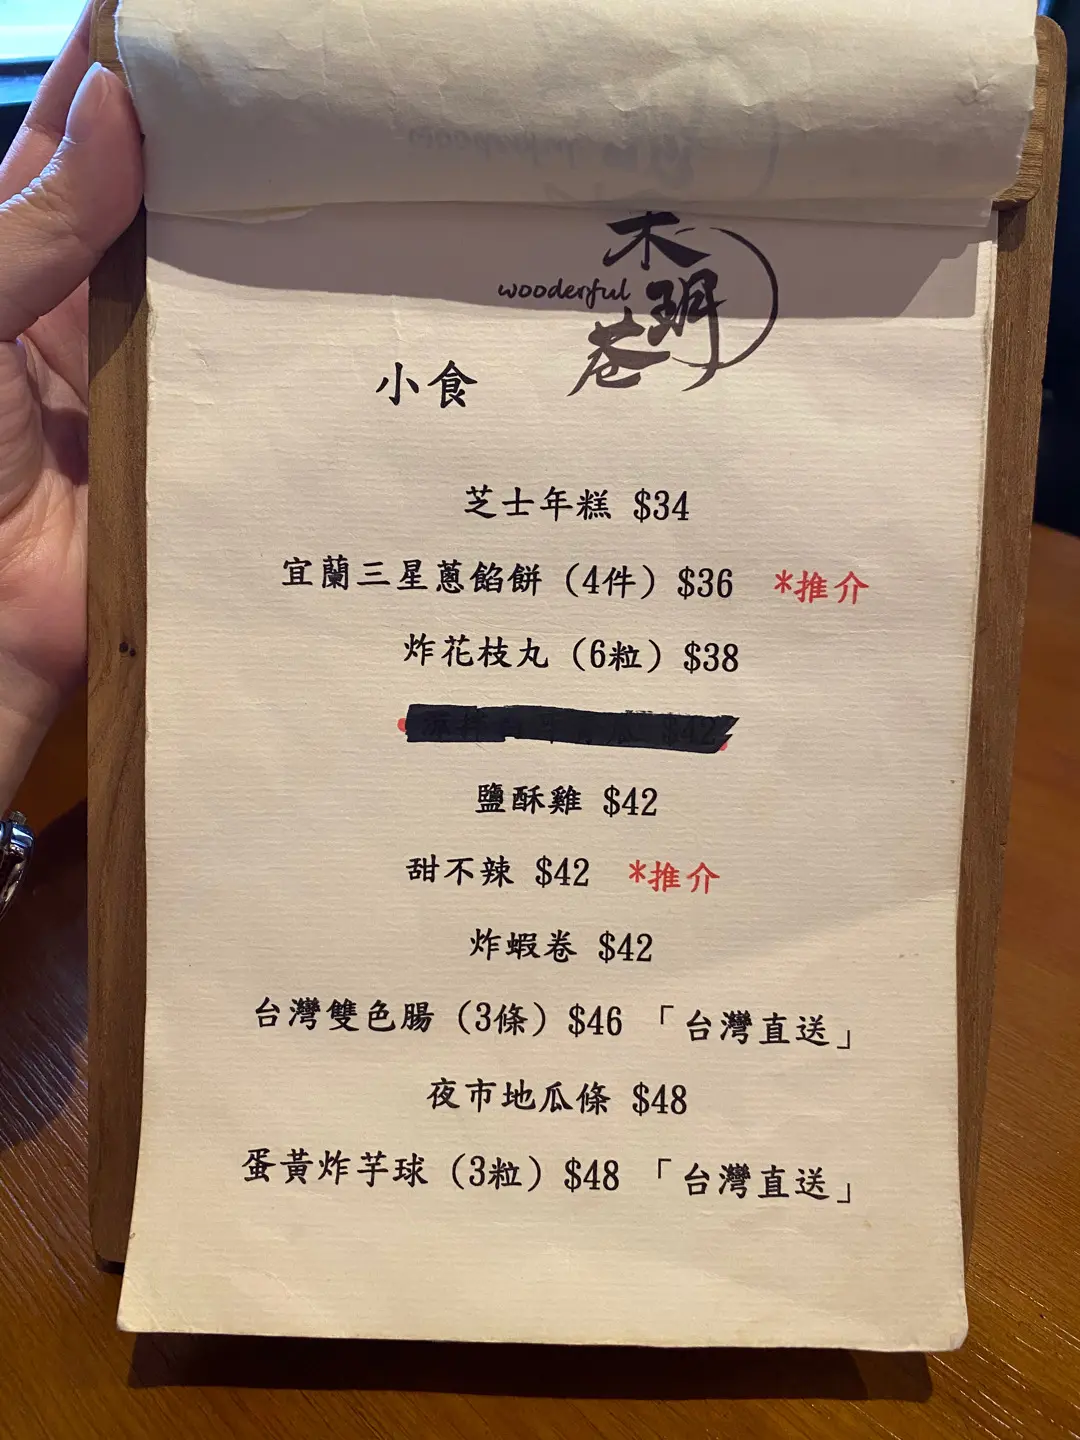 木
wooderful
玥
巷
小食
芝士年糕 $34
宜蘭三星蔥餡餅（4件）$36 *推介
炸花枝丸（6粒）$38
$42
鹽酥雞 $42
甜不辣 $42 *推介
炸蝦卷 $42
台灣雙色腸（3條）$46 「台灣直送」
夜市地瓜條 $48
蛋黃炸芋球（3粒）$48 「台灣直送」